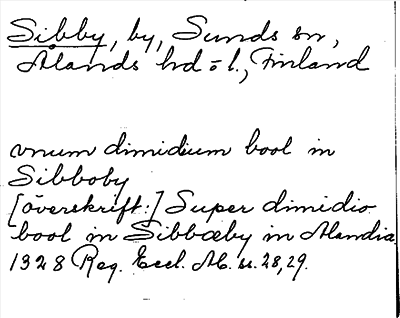 Sibby, by, Sunds sn,
Ålands hd o l., Finland
vnum dimidium bool in
Sibboby
[överskrift:] Super dimidio
bool in Sibbœby in Alandia
1328 Reg. Eccl. Ab. s. 28, 29.